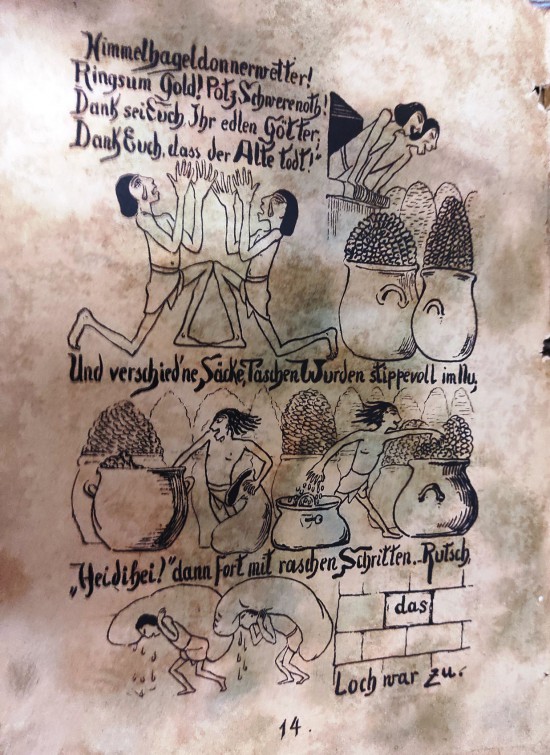 Himmelhageldonnerwetter!
Ringsum Gold! Potz Schwerenoth!
Dank sei Euch, Ihr edlen Götter,
Dank Euch, dass der Alte todt!"
Und verschied'ne Säcke, Taschen Wurden stippevoll im Nu,
„Heidihei!" dann fort mit raschen Schritten.-Rutsch,
das
Loch war zu.
14.